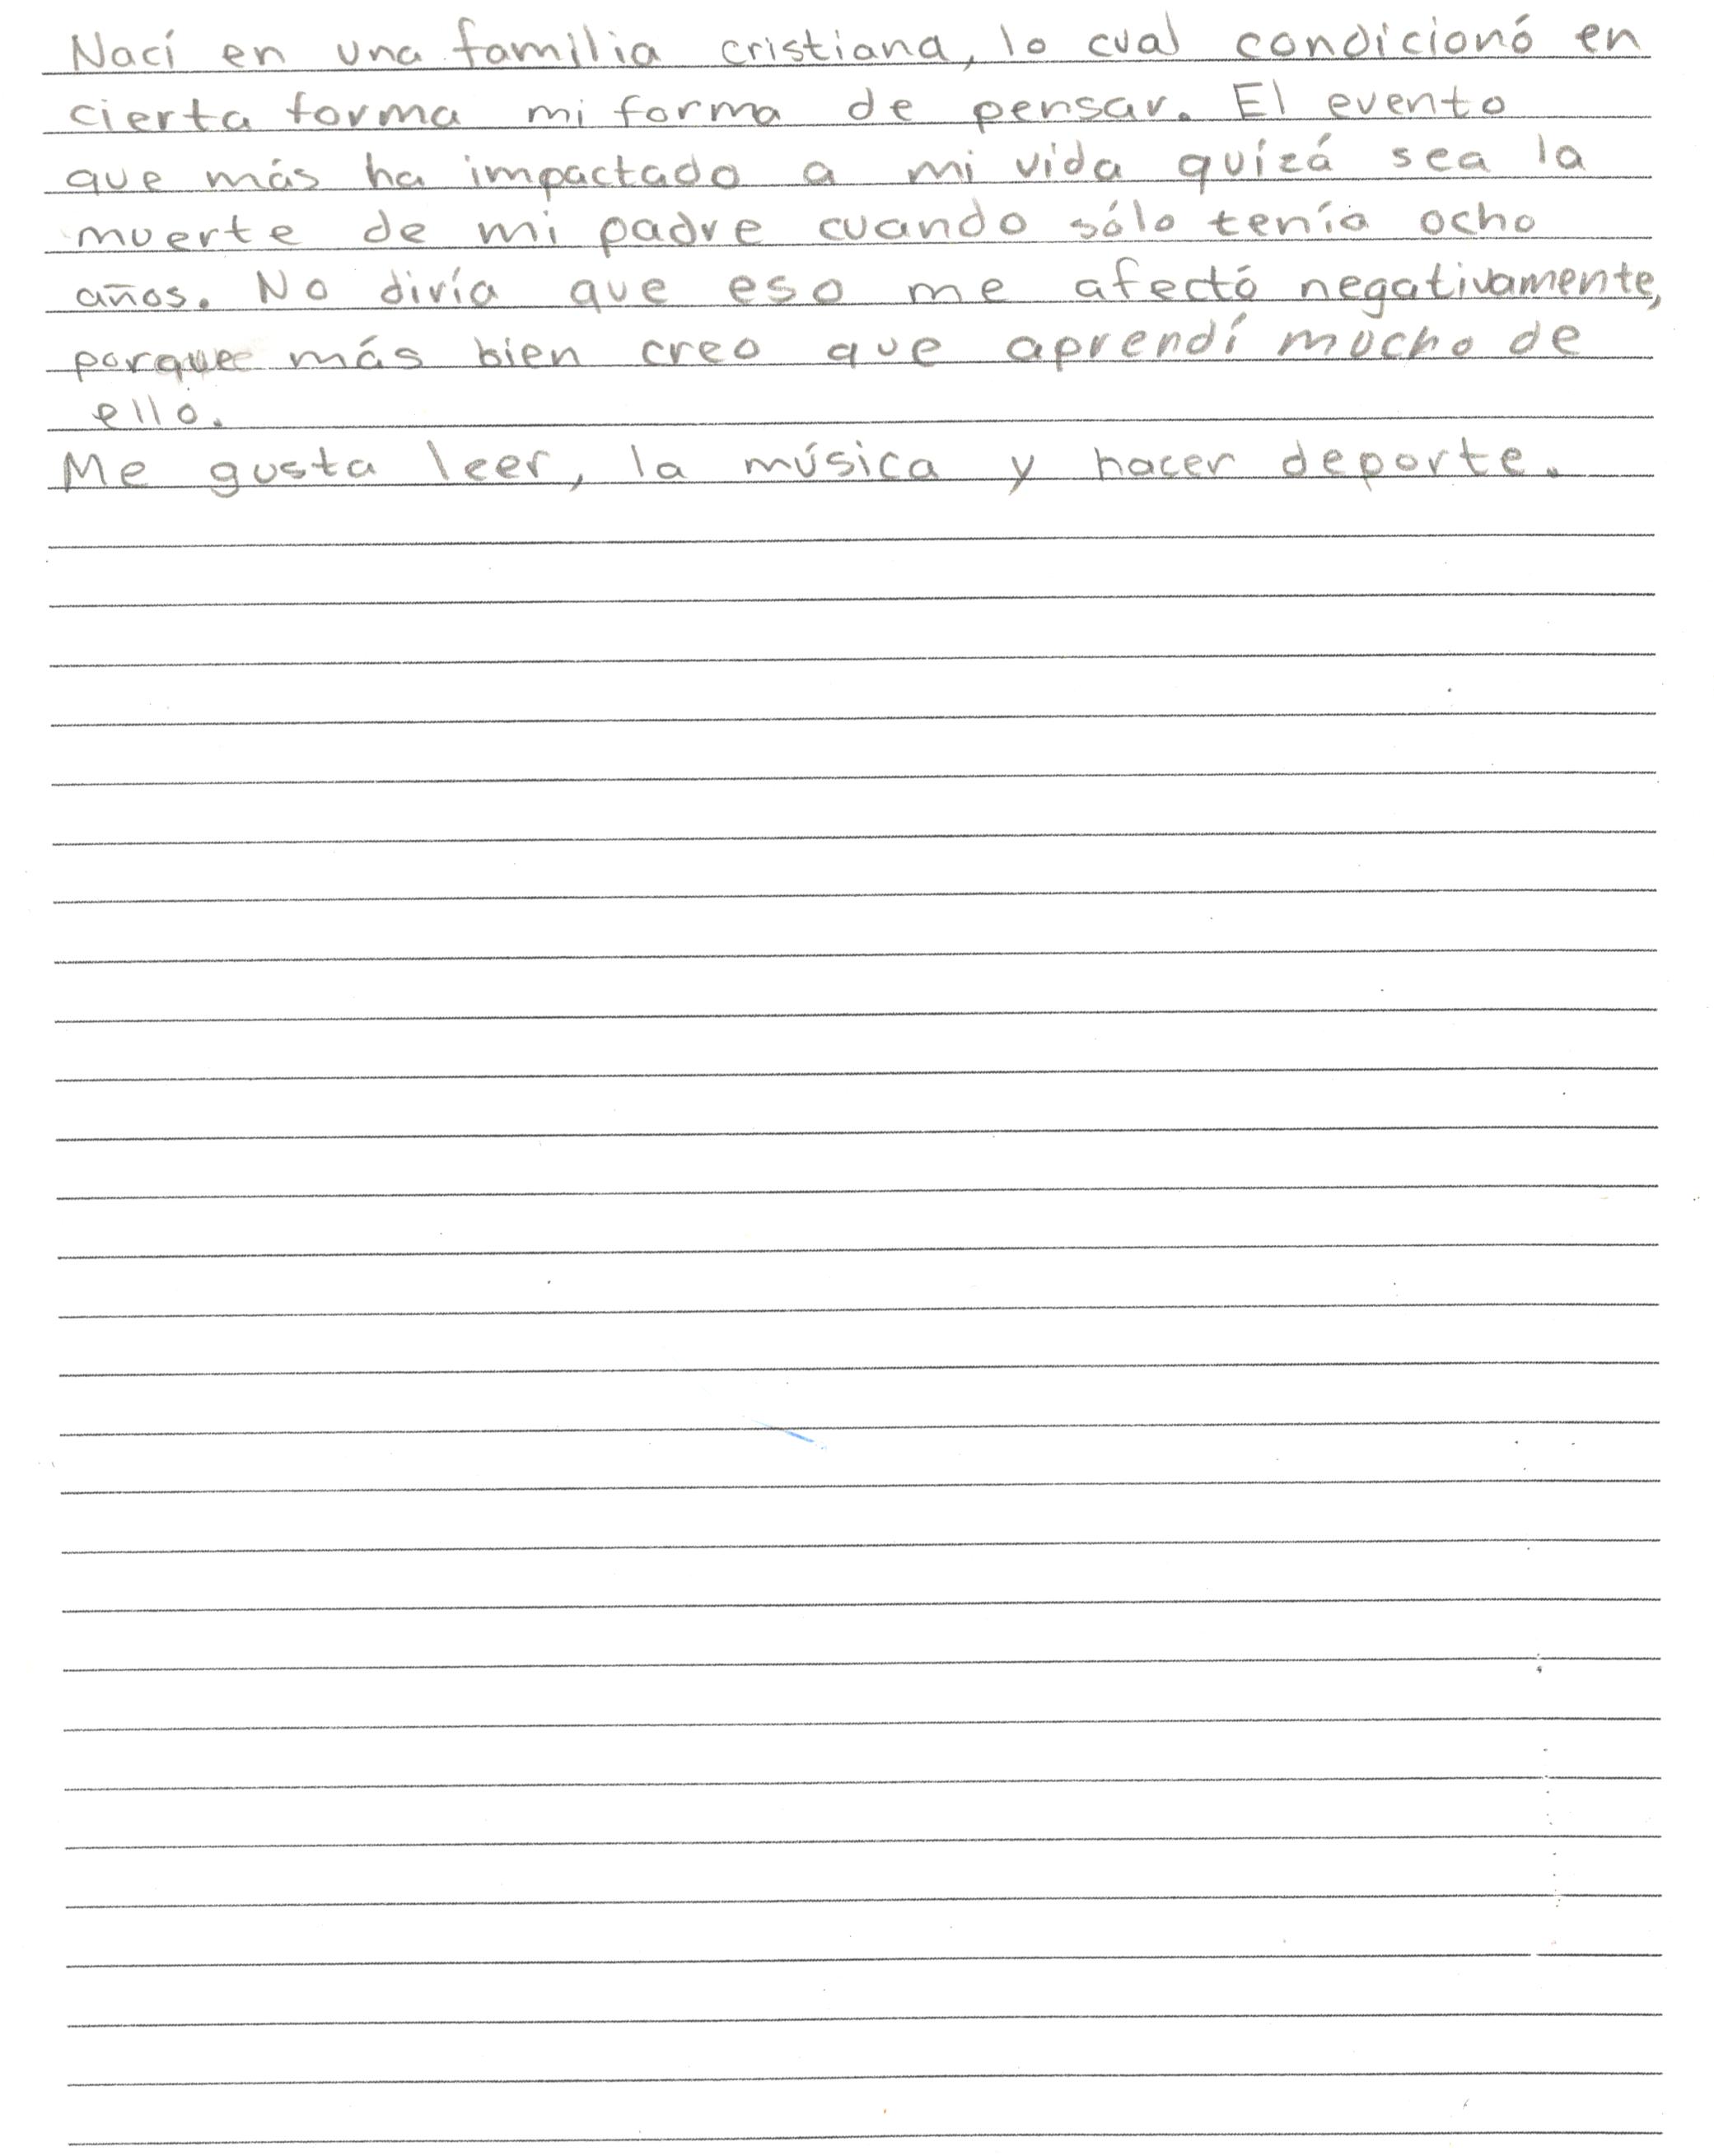 Nací en una familia cristiana, lo cual condicionó en
cierta forma mi forma de pensar. El evento
que más ha impactado a mi vida quizá sea la
muerte de mi padre cuando sólo tenía ocho
años. No diría que eso me afectó negativamente,
porque más bien creo que aprendí mucho de
ello.
Me gusta leer, la música y hacer deporte.